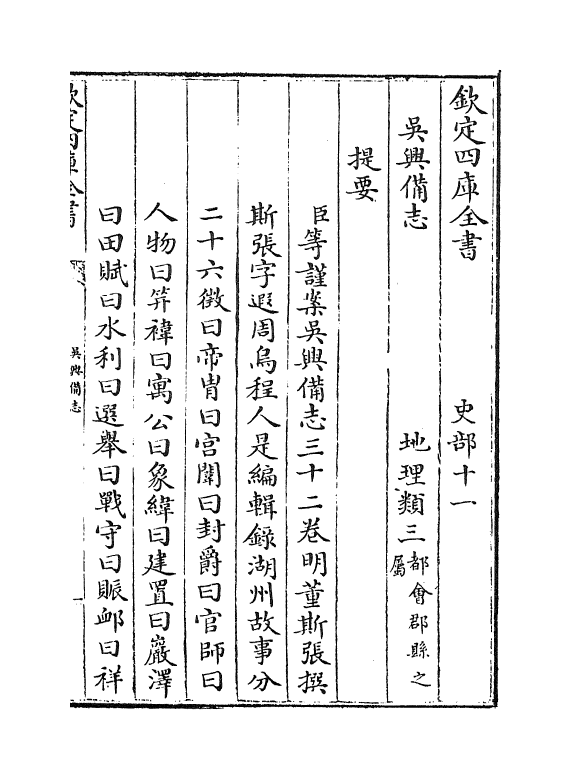 欽定四庫全書　史部十一
吳興備志　地理類三都會郡縣之屬
提要
臣等謹案吳興備志三十二卷明董斯張撰
斯張字遐周烏程人是編輯錄湖州故事分
二十六徵曰帝胄曰宮闈曰封爵曰官師曰
人物曰笄褘曰寓公曰象緯曰建置曰巖澤
曰田賦曰水利曰選舉曰戰守曰賑䘏曰祥
欽定四庫全書　吳興備志　一